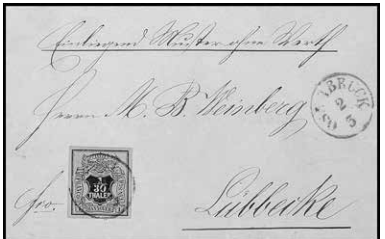 Einliegend Muster ohne Werth
Herrn M. B. Weinberg
OSNABRUCK
2/5
fro.
1/30
THALER
Lübbecke